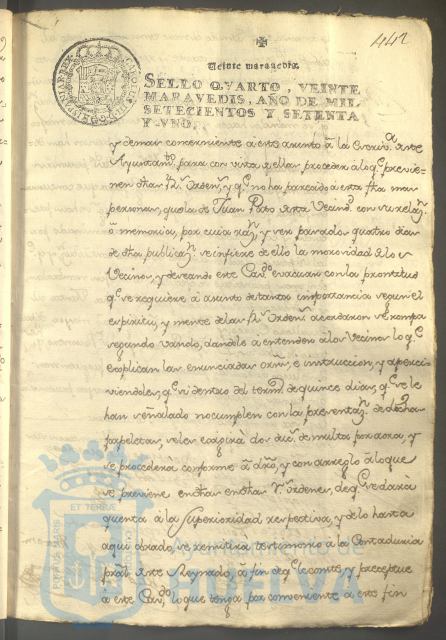 442
Veinte maravedis.
SELLO QVARTO, VEINTE
MARAVEDIS, AÑO DE MIL
SETECIENTOS Y SETENTA
Y VNO.
y demas concerniente a este asunto â la Escriv.ª de este
Ayuntam.to para con vista de ellas proceder â lo q.e previe-
nen dhas R.s Ordens, y q.e no ha parecido â esta fha mas
personas, que la de Juan Prto de esta Vecind. con su relaz.n
ô memoria, por cuia raz.n, y ser pasados quatro dias
de dha publicaz.n se infiere de ello la morosidad de los
Vecinos, y deseando este Cav.do evacuar con la prontitud
q.e se requiere â asunto de tanta importancia segun el
espiritu, y mente de las R.s Ordens acordaron se rompa
segundo vando, dandole a entender â los Vecinos lo q.e
explican las enunciadas orns, e instruccion, y aperci-
viendoles, q.e si dentro del term.no de quince dias, q.e se le
han señalado no cumplen con la presentaz.n de dhas
papeletas, se les exigirà dos duc.s de multa por aora, y
se procederà conforme â dro, y con arreglo â lo que
se previene en dhas R.s ordenes, de q.e se darà
quenta â la Superioridad respectiva, y de lo hasta
aqui obrado, se remitirà testimonio â la Contaduria
pral de este Reynado, â fin de q.e le conste, y preceptue
â este Cav.do lo que tenga por conveniente â este fin
ET TERRAE
Ayuntamiento de
HUELVA